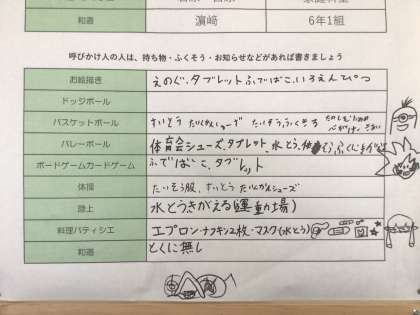 和道 濵﨑 6年1組
呼びかけ人の人は、持ち物・ふくそう・お知らせなどがあれば書きましょう
お絵描き えのぐ、タブレットふでばこ、いろえんぴつ
ドッジボール
バスケットボール すいとう たいくかんしゅーず たいそうふくそう
バレーボール 体育会シューズ、タブレット、水とう、
ボードゲームカードゲーム ふでばこ、タブレット
体操 たいそう服、すいとう たいくかんシューズ
陸上 水とうきがえる(運動場)
料理パティシエ エプロン・ナフキン2枚・マスク(水とう)
和道 とくに無し